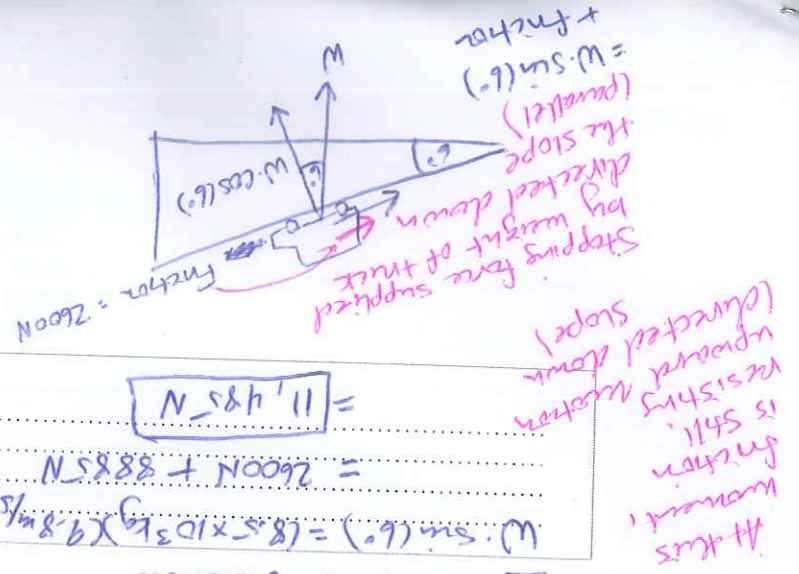 W·sin(6°) = (8.5×10³kg)(9.8m/s
= 2600N + 8885N
= 11,485N
At this
moment,
friction
is still
resisting
upward motion
(directed down
slope)
Friction = 2600N
Stopping force supplied
by weight of truck
directed down
the slope
(parallel)
= W·sin(6°)
+ friction
W·cos(6°)
6°
6°
W